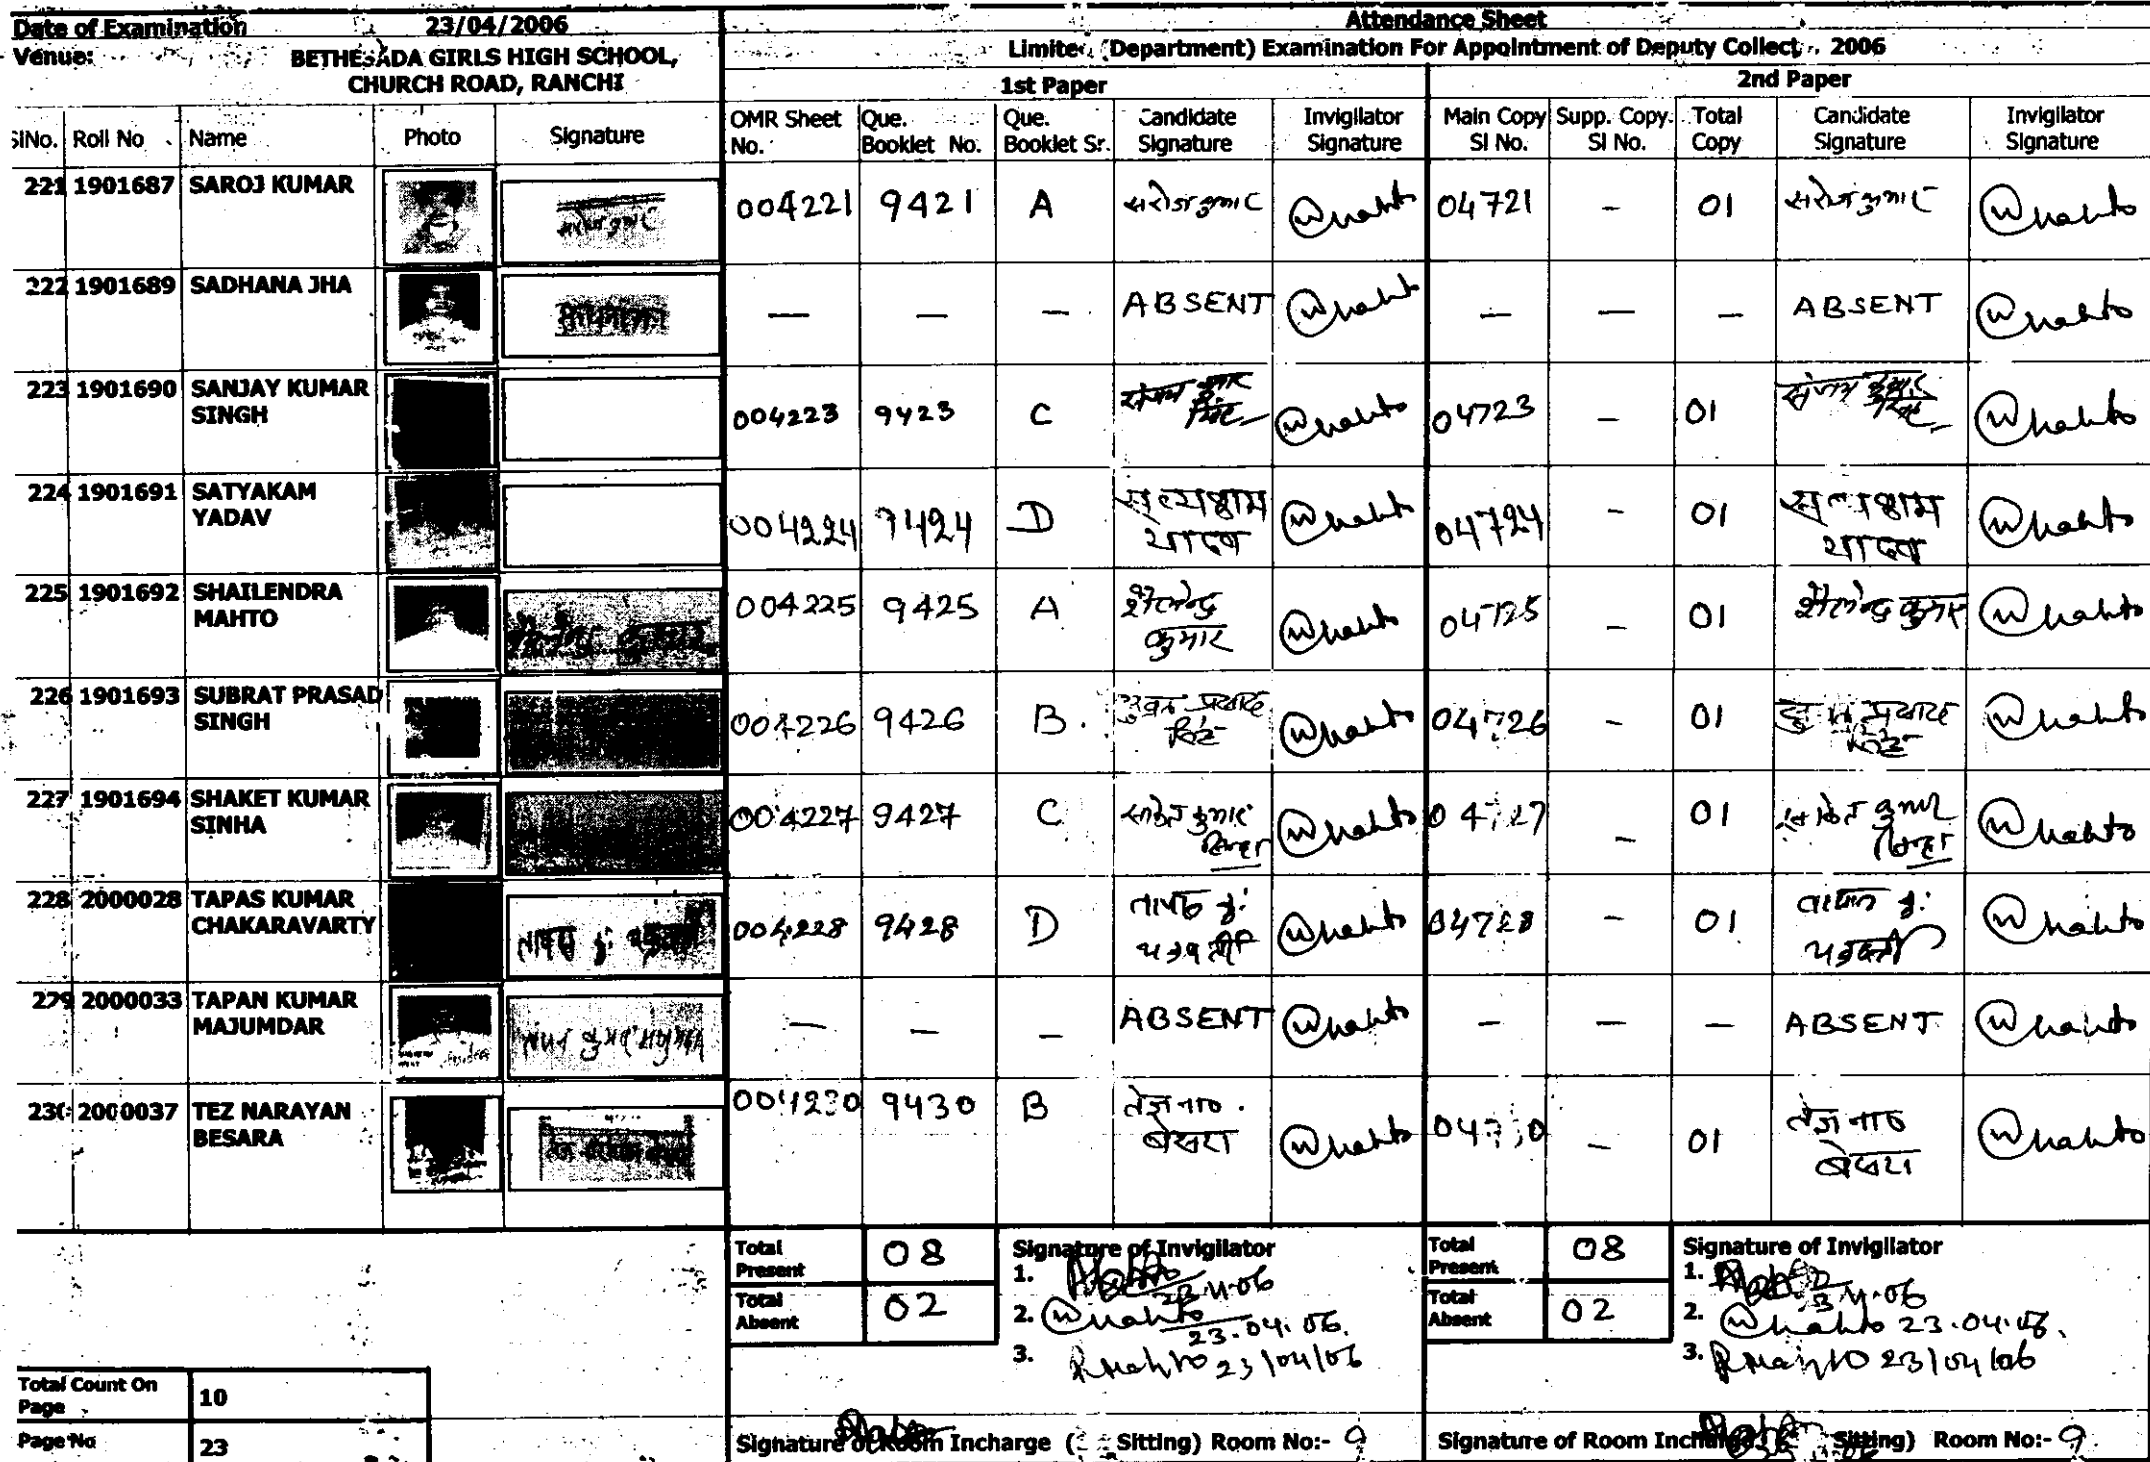 Date of Examination 23/04/2006
Attendance Sheet
Venue: BETHESADA GIRLS HIGH SCHOOL,
CHURCH ROAD, RANCHI
(Department) Examination For Appointment of Deputy 2006
1st Paper
2nd Paper
SlNo. Roll No Name Photo Signature OMR Sheet No. Que. Booklet No. Que. Booklet Sr. Candidate Signature Invigilator Signature Main Copy Sl No. Supp. Copy. Sl No. Total Copy Candidate Signature Invigilator Signature
221 1901687 SAROJ KUMAR 004221 9421 A सरोज कुमार Mahto 04721 - 01 सरोज कुमार Mahto
222 1901689 SADHANA JHA — — — ABSENT Mahto — — — ABSENT Mahto
223 1901690 SANJAY KUMAR SINGH 004223 9423 C संजय कुमार सिंह Mahto 04723 - 01 संजय कुमार सिंह Mahto
224 1901691 SATYAKAM YADAV 004224 9424 D यादव Mahto 04724 - 01 यादव Mahto
225 1901692 SHAILENDRA MAHTO 004225 9425 A शैलेन्द्र कुमार Mahto 04725 - 01 शैलेन्द्र कुमार Mahto
226 1901693 SUBRAT PRASAD SINGH 004226 9426 B. सुब्रत प्रसाद सिंह Mahto 04726 - 01 प्रसाद सिंह Mahto
227 1901694 SHAKET KUMAR SINHA 004227 9427 C साकेत कुमार सिन्हा Mahto 04727 - 01 साकेत कुमार सिन्हा Mahto
228 2000028 TAPAS KUMAR CHAKARAVARTY तापस कु: 004228 9428 D तापस कु: चक्रवर्ती Mahto 04728 - 01 तापस कु: चक्रवर्ती Mahto
229 2000033 TAPAN KUMAR MAJUMDAR — — — ABSENT Mahto — — — ABSENT Mahto
230 2000037 TEZ NARAYAN BESARA 004230 9430 B बेसरा Mahto 04730 - 01 बेसरा Mahto
Total Present 08
Signature of Invigilator
Total Present 08
Signature of Invigilator
1.
1.
Total Absent 02
2. Mahto 23.04.06.
Total Absent 02
2. Mahto 23.04.06.
3. RMahto 23/04/06
3. RMahto 23/04/06
Total Count On Page 10
Page No 23
Signature of Room Incharge ( Sitting) Room No:- 9
Signature of Room Incharge Sitting) Room No:- 9